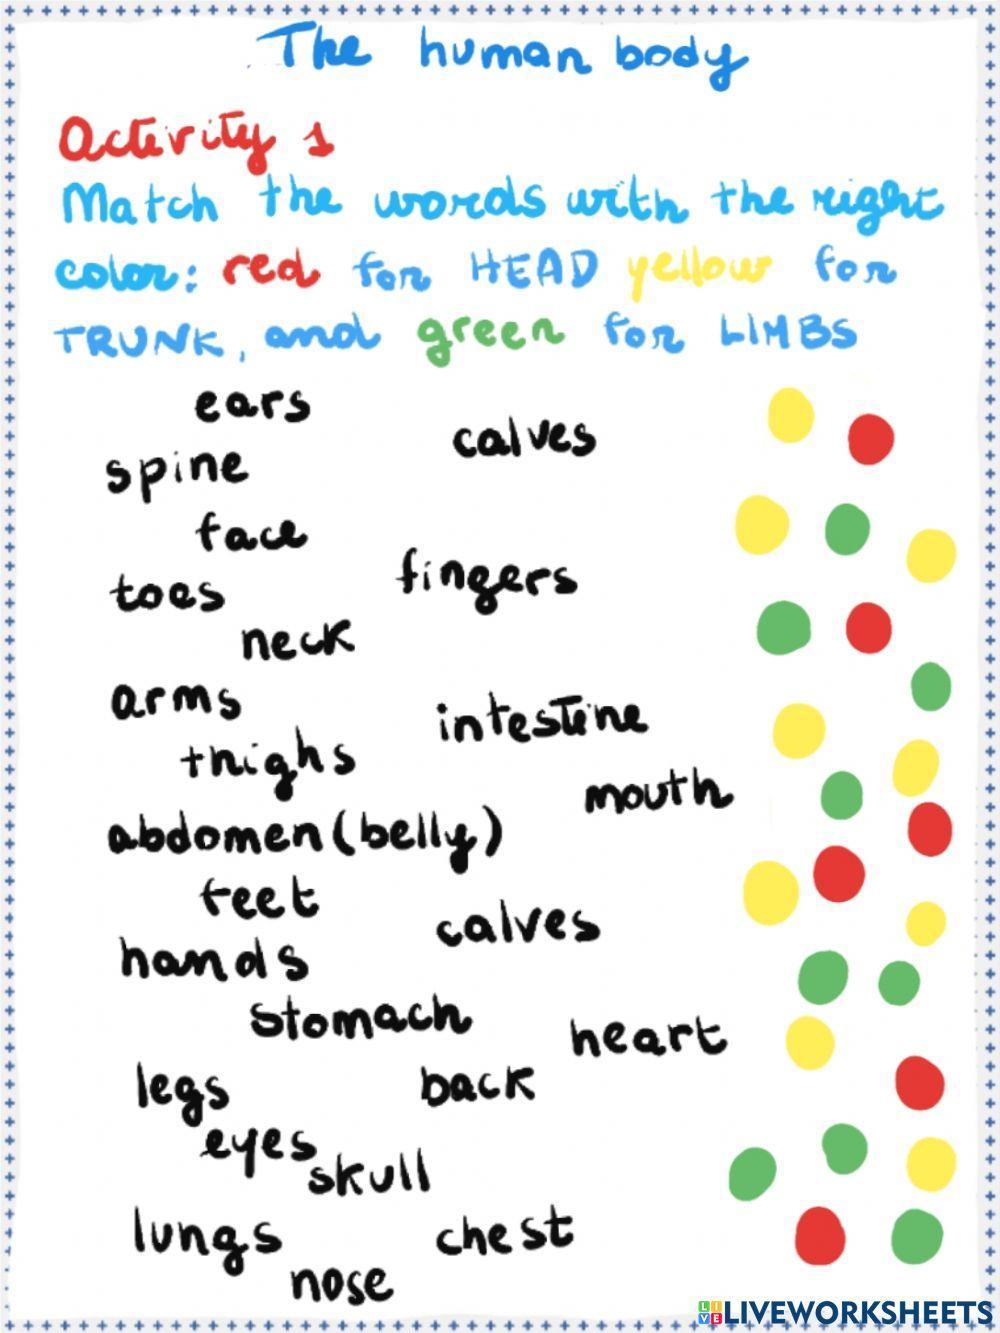 The human body
Activity 1
Match the words with the right
color: red for HEAD yellow for
TRUNK, and green for LIMBS
ears
calves
spine
face
fingers
toes
neck
arms
intestine
thighs
mouth
abdomen (belly)
feet
calves
hands
stomach
heart
legs
back
eyes
skull
lungs
chest
nose
LIVE LIVEWORKSHEETS